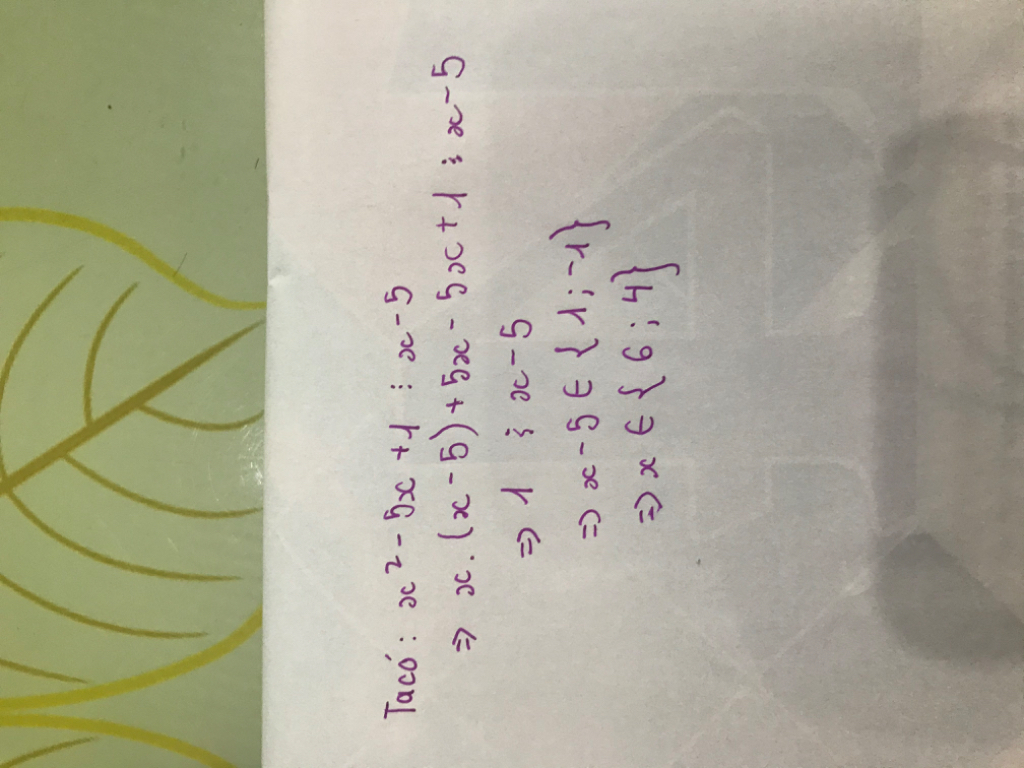 Ta có : x² - 5x + 1 ⋮ x - 5
⇒ x . (x - 5) + 5x - 5x + 1 ⋮ x - 5
⇒ 1 ⋮ x - 5
⇒ x - 5 ∈ { 1 ; -1 }
⇒ x ∈ { 6 ; 4 }